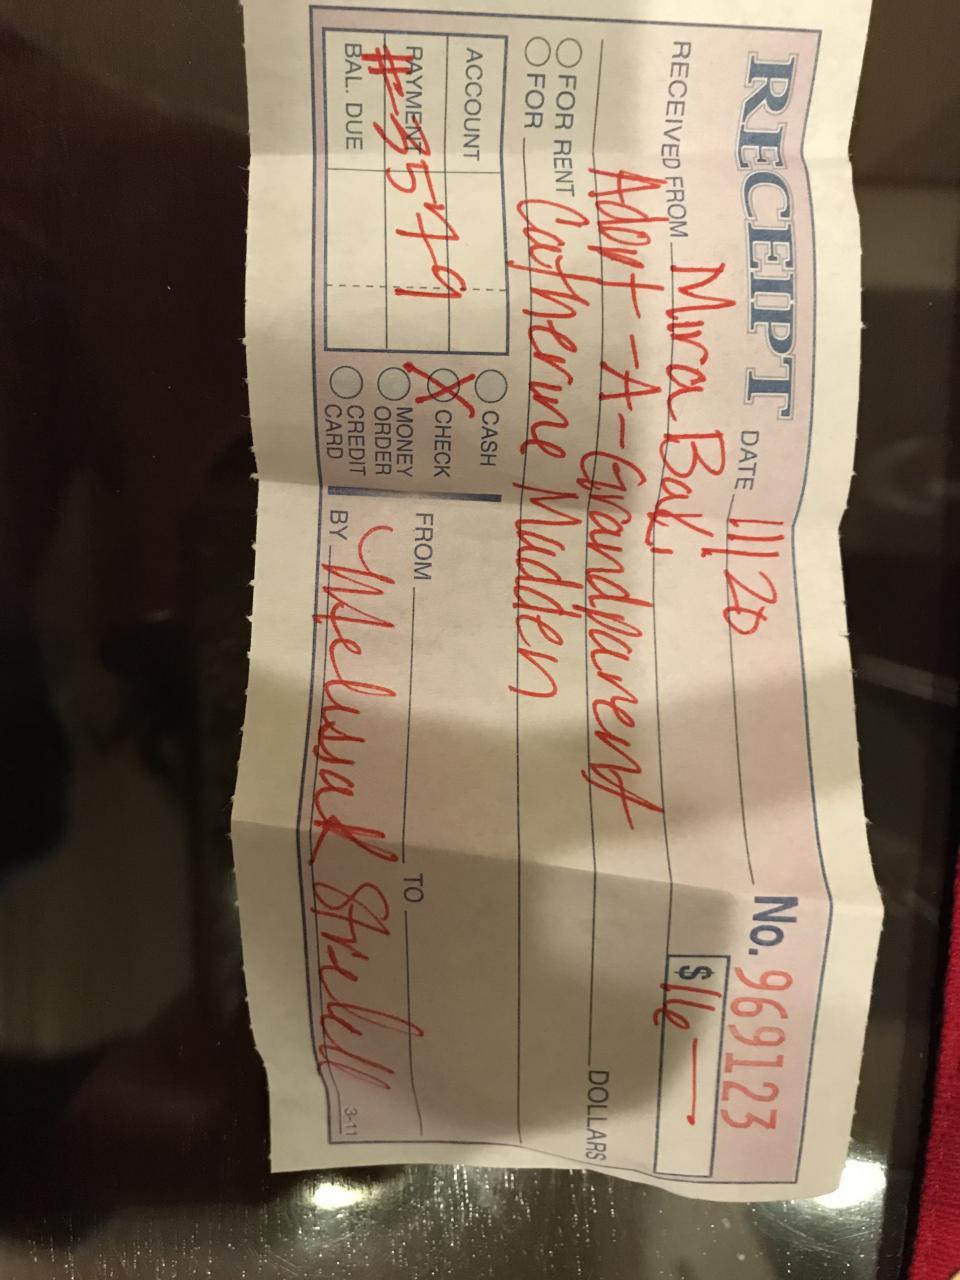 RECEIPT DATE 11/20 No. 969123
RECEIVED FROM Mira Bali $16—
Adopt-A-Grandparent DOLLARS
FOR RENT
FOR Catherine Madden
ACCOUNT
PAYMENT #3579
BAL. DUE
CASH
CHECK
MONEY ORDER
CREDIT CARD
FROM TO
BY Melissa Strebell
3-11